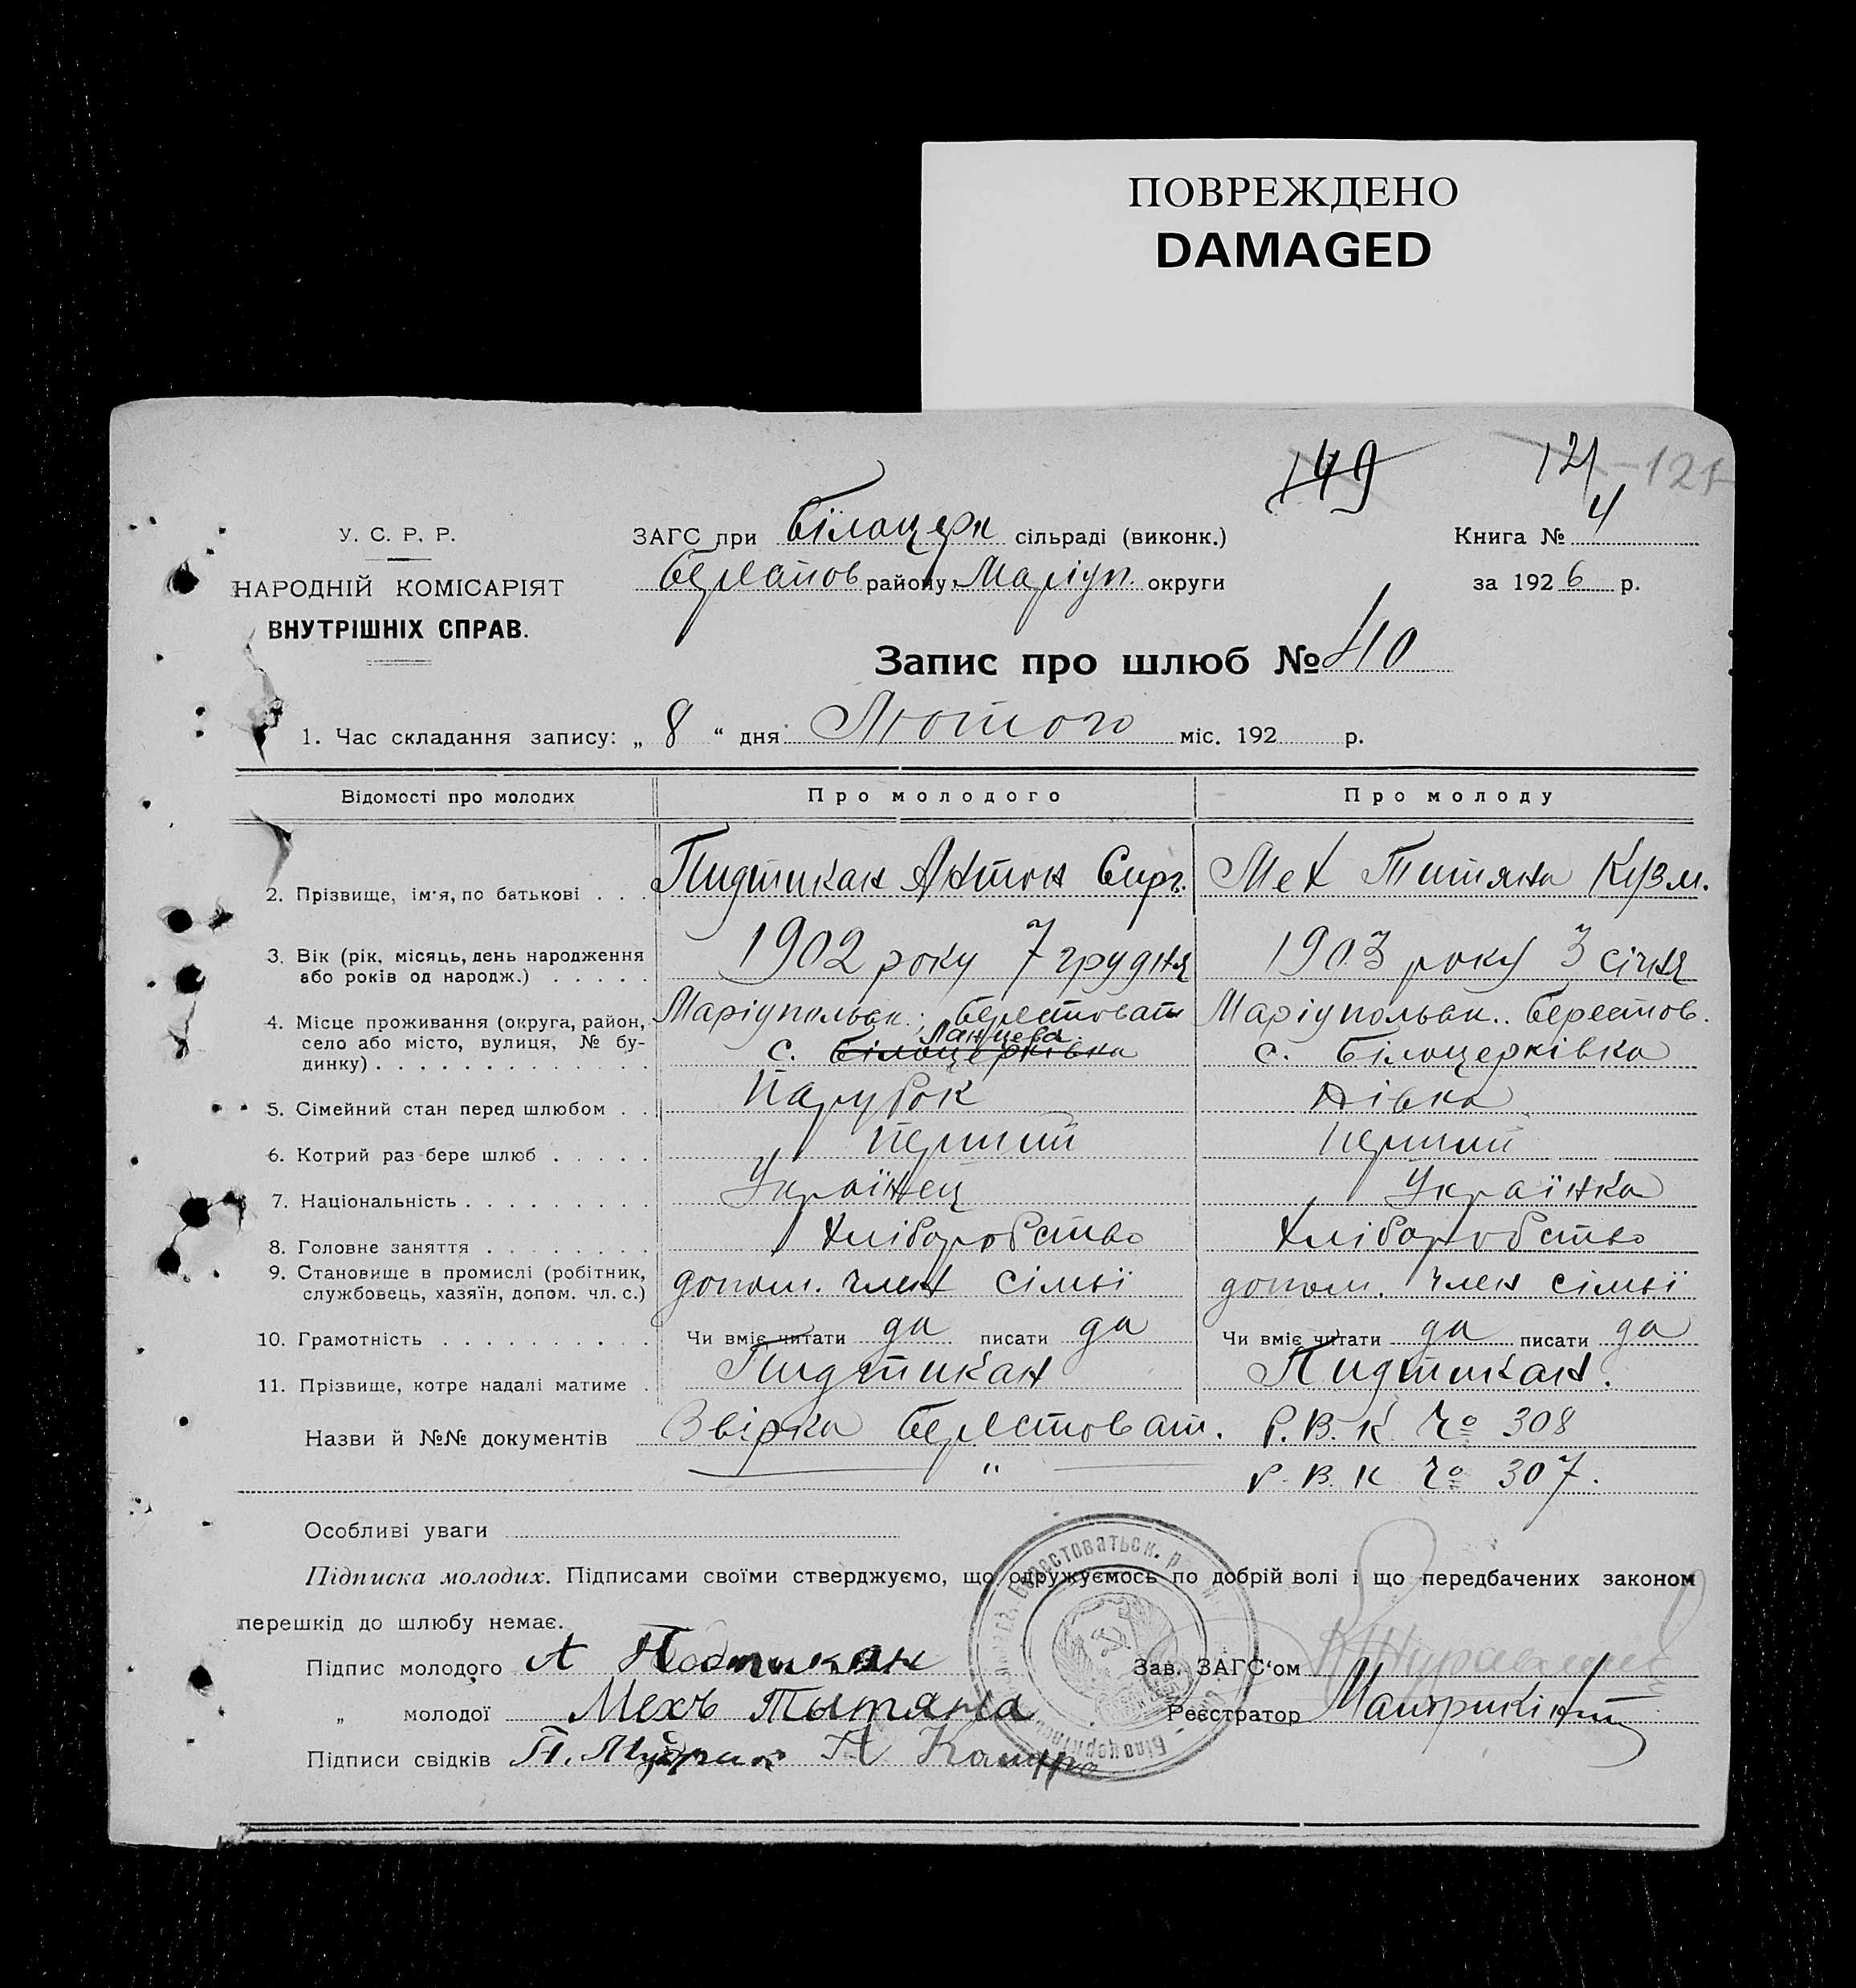 ПОВРЕЖДЕНО
DAMAGED
149
121 - 121
У. С. Р. Р.
НАРОДНІЙ КОМІСАРІЯТ
ВНУТРІШНІХ СПРАВ.
ЗАГС при Білоцерк сільраді (виконк.)
району Маріуп. округи
Книга № 4
за 1926 р.
Запис про шлюб № 40
1. Час складання запису: „ 8 “ дня Лютого міс. 192 р.
Відомості про молодих Про молодого Про молоду
2. Прізвище, ім'я, по батькові . . . Пидтикан Антон Сирг. Мех Титяна Кузм.
3. Вік (рік, місяць, день народження або років од народж.) . . . . . 1902 року 7 грудня 1903 року 3 січня
4. Місце проживання (округа, район, село або місто, вулиця, № будинку) . . . . . . . . . . . . . Маріупольск.; Берестоват с. Білоцерківка Ланцева Маріупольск.. Берестов. с. Білоцерківка
5. Сімейний стан перед шлюбом . . Парубок Дівка
6. Котрий раз бере шлюб . . . . . Перший Перший
7. Національність . . . . . . . . . Українец Українка
8. Головне заняття . . . . . . . . Хліборобство Хліборобство
9. Становище в промислі (робітник, службовець, хазяїн, допом. чл. с.) допом. член сімьї допом. член сімьї
10. Грамотність . . . . . . . . . . Чи вміє читати да писати да Чи вміє читати да писати да
11. Прізвище, котре надалі матиме . Пидтикан Пидтикан.
Назви й №№ документів Звірка Берестоват. Р.В.К. Чо 308
" Р.В.К Чо 307.
Особливі уваги
Підписка молодих. Підписами своїми стверджуємо, що одружуємось по добрій волі і що передбачених законом
перешкід до шлюбу немає.
Підпис молодого А Подтикан
Зав. ЗАГС‘ом
„ молодої Мехъ Тытяна
Реєстратор
Підписи свідків П. Мудрик А